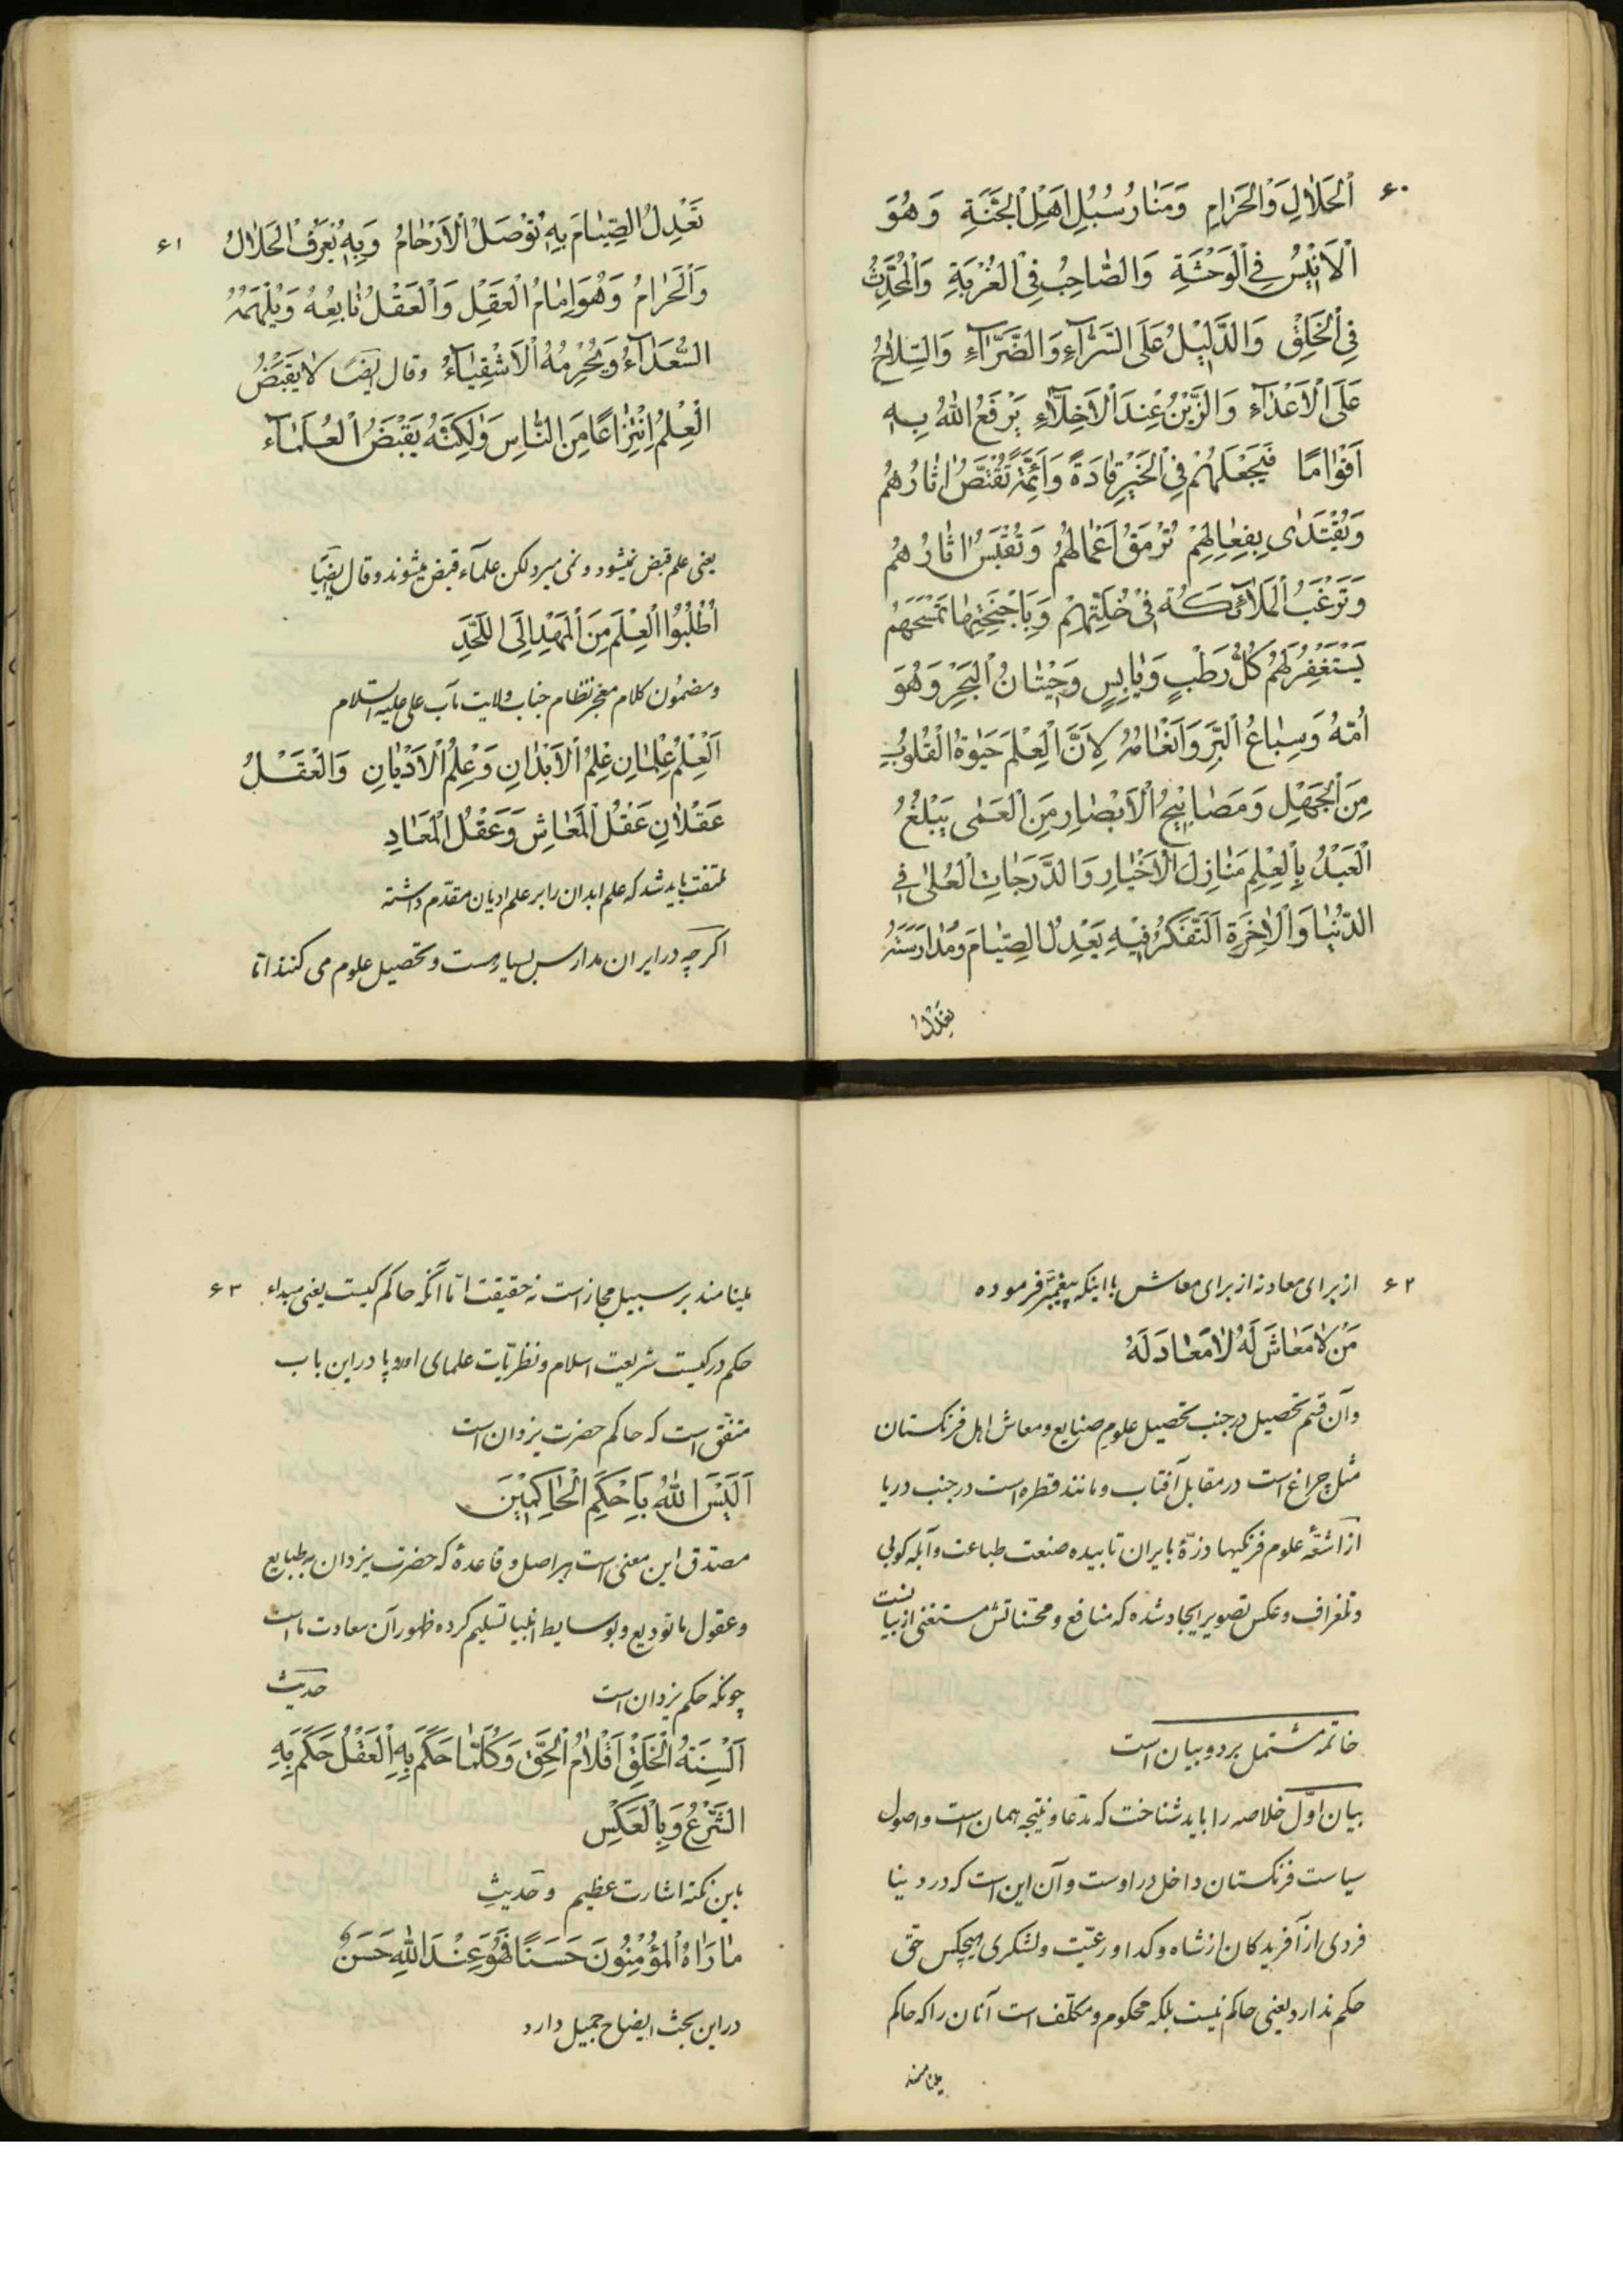 ۶۰
اَلْحَلٰالِ وَالْحَرٰامِ وَمَنٰارُ سُبُلِ اَهْلِ الْجَنَّةِ وَهُوَ
الْاَنِیْسُ فِی الْوَحْشَةِ وَالصّٰاحِبُ فِی الْغُرْبَةِ وَالْمُحَدِّثُ
فِی الْخَلِقْ وَالدَّلِیْلُ عَلَی السَّرّٰآءِ وَالضَّرّٰآءِ وَالسِّلٰاحُ
عَلَی الْاَعْدٰآءِ وَالزَّیْنُ عِنْدَ الْاَخِلّٰآءِ یَرْفَعُ اللّٰهُ بِهِ
اَقْوٰامًا فَیَجْعَلَهُمْ فِی الْخَیْرِ قٰادَةً وَاَئِمَّةً تُقْتَصُّ اٰثٰارُهُمْ
وَیُقْتَدٰی بِفِعٰالِهِمْ تُرْمَقُ اَعْمٰالُهُمْ وَتُقْبَسُ اٰثٰارُهُمْ
وَتَرْغَبُ الْمَلٰآئِكَةُ فِیْ خُلَّتِهِمْ وَبِاَجْنِحَتِهٰا تَمْسَحُهُمْ
یَسْتَغْفِرُ لَهُمْ كُلُّ رَطْبٍ وَیٰابِسٍ وَحِیْتٰانُ الْبَحْرِ وَهُوَ
اُمّهُ وَسِبٰاعُ الْبَرِّ وَاَنْعٰامُهُ لِاَنَّ الْعِلْمَ حَیٰوةُ الْقُلُوْبِ
مِنَ الْجَهْلِ وَمَصٰابِیْحُ الْاَبْصٰارِ مِنَ الْعَمٰی یَبْلُغُ
الْعَبْدُ بِالْعِلْمِ مَنٰازِلَ الْاَخْیٰارِ وَالدَّرَجٰاتِ الْعُلٰی فِی
الدُّنْیٰا وَالْاٰخِرَةِ اَلتَّفَكُّرُ فِیْهِ یَعْدِلُ الصِّیٰامَ وَمُدٰارَسَتُهُ
تَعْدِلُ
۶۱
تَعْدِلُ الصِّیٰامَ بِهِ تُوْصَلُ الْاَرْحٰامُ وَبِهِ یُعْرَفُ الْحَلٰالُ
وَالْحَرٰامُ وَهُوَ اِمٰامُ الْعَقْلِ وَالْعَقْلُ تٰابِعُهُ وَیُلْهَمُهُ
السُّعَدٰآءُ وَیُحْرِمُهُ الْاَشْقِیٰآءُ وقال ایضًا لٰا یَقْبَضُ
الْعِلْمُ اِنْتِزٰاعًا مِنَ النّٰاسِ وَلٰكِنَّهُ یَقْبَضُ الْعُلَمٰآء
یعنی علم قبض نمیشود و نمی میرد لكن علمآء قبض میشوند و قال ایضًا
اُطْلُبُوا الْعِلْمَ مِنَ الْمَهْدِ اِلَی اللَّحَدِ
و مضمون كلام معجز نظام جناب ولایت مآب علی علیه السلام
اَلْعِلْمُ عِلْمٰانِ عِلْمُ الْاَبْدٰانِ وَعِلْمُ الْاَدْیٰانِ وَالْعَقْلُ
عَقْلٰانِ عَقْلُ الْمَعٰاشِ وَعَقْلُ الْمَعٰادِ
ملتفت باید شد كه علم ابدان را بر علم ادیان مقدّم داشته
اگر چه در ایران مدارس بسیار هست و تحصیل علوم می كنند امّا
۶۲
از برای معاد نه از برای معاش با اینكه پیغمبر فرموده
مَنْ لٰا مَعٰاشَ لَهُ لٰا مَعٰادَ لَهُ
و آن قسم تحصیل در جنب تحصیل علوم صنایع و معاش اهل فرنگستان
مثل چراغ است در مقابل آفتاب و مانند قطره است در جنب دریا
از اشعّهٔ علوم فرنگیها ذرّهٔ بایران تابیده صنعت طباعت و آبله كوبی
و تلغراف و عكس تصویر ایجاد شده كه منافع و محسّناتش مستغنی از بیانست
خاتمه مشتمل بر دو بیان است
بیان اوّل خلاصه را باید شناخت كه مدّعا و نتیجه همان است و اصول
سیاست فرنگستان داخل در اوست و آن این است كه در دینا
فردی از آفریدگان از شاه و گدا و رعیّت و لشكری هیچكس حق
حكم ندارد یعنی حاكم نیست بلكه محكوم و مكلّف است آنان را كه حاكم
مینامند
۶۳
مینامند بر سبیل مجاز است نه حقیقت امّا آنگه حاكم كیست یعنی مبداء
حكم در كیست شریعت اسلام و نظریّات علمای اوروپا در این باب
متفّق است كه حاكم حضرت یزدان است
اَلَیْسَ اللّٰهُ بِاَحْكَمِ الْحٰاكِمِیْنَ
مصدّق این معنی است هر اصل و قاعدهٔ كه حضرت یزدان به طبایع
و عقول ما تودیع و بوسایط انبیا تسلیم كرده ظهور آن سعادت ما است
چونكه حكم یزدان است حدیث
اَلْسِنَةُ الْخَلْقِ اَقْلٰامُ الْحَقِّ وَكُلَّمٰا حَكَمَ بِهِ الْعَقْلُ حَكَمَ بِهِ
الشَّرْعُ وَبِالْعَكْسِ
باین نكته اشارت عظیم و حدیثِ
مٰا رَاٰهُ الْمُؤْمِنُوْنَ حَسَنًا فَهُوَ عِنْدَ اللّٰهِ حَسَنٌ
در این بحث ایضاح جمیل دارد